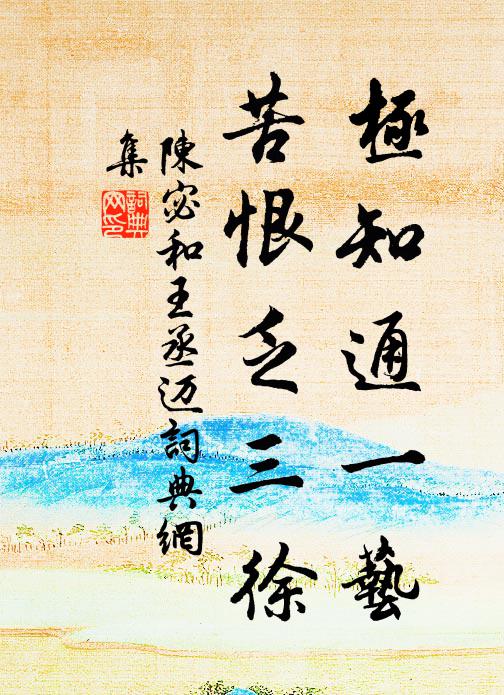 極知通一藝
苦恨乏三徐
陳宓和王丞迈詞典網
集
詞典
网印